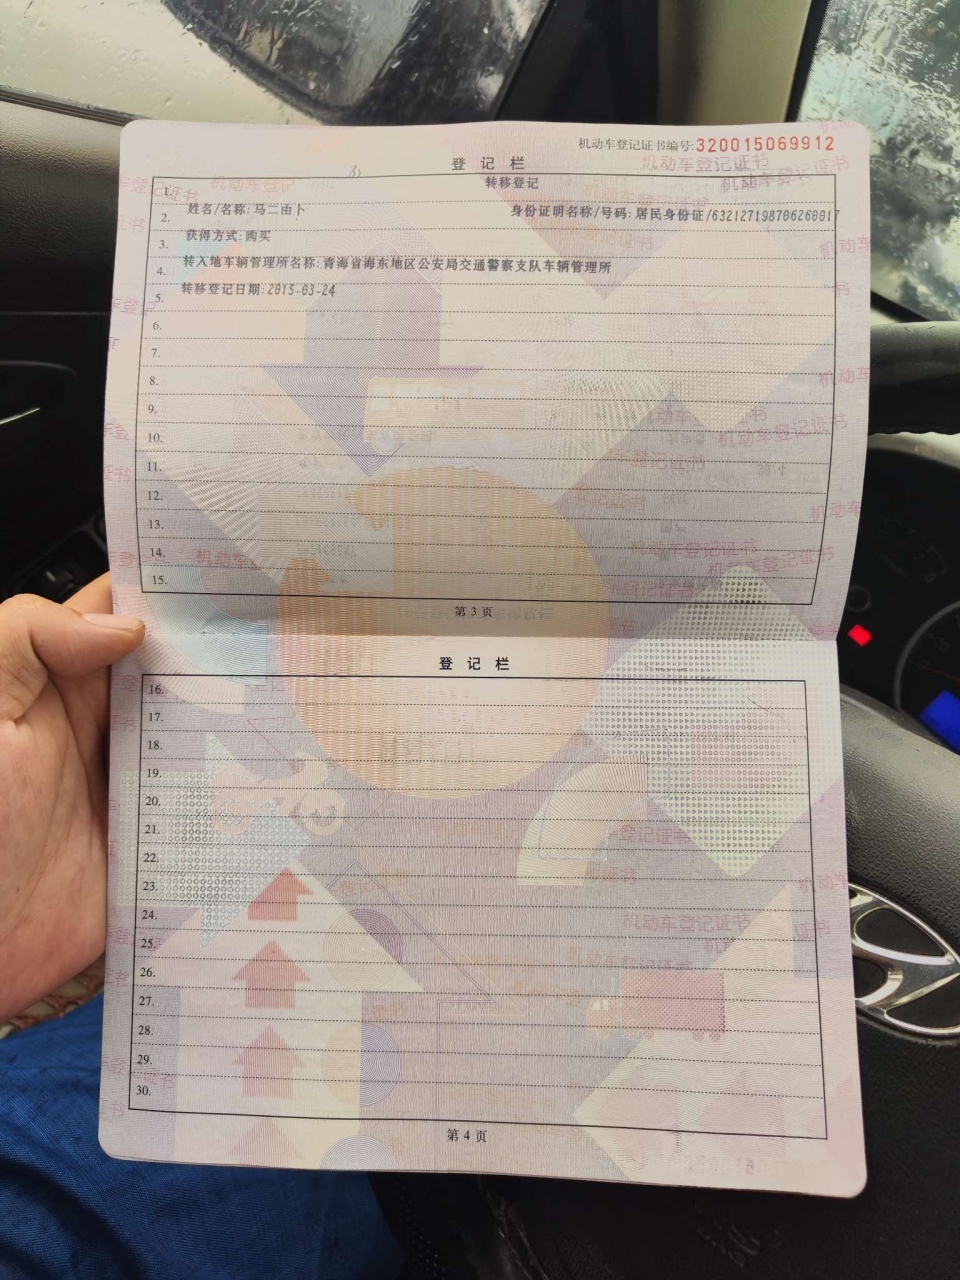 机动车登记证书编号:320015069912
登记栏
转移登记
2. 姓名/名称:马二由卜 身份证明名称/号码:居民身份证/632127198706260017
3. 获得方式:购买
4. 转入地车辆管理所名称:青海省海东地区公安局交通警察支队车辆管理所
5. 转移登记日期:2015-03-24
6.
7.
8.
9.
10.
11.
12.
13.
14.
15.
第3页
登记栏
16.
17.
18.
19.
20.
21.
22.
23.
24.
25.
26.
27.
28.
29.
30.
第4页